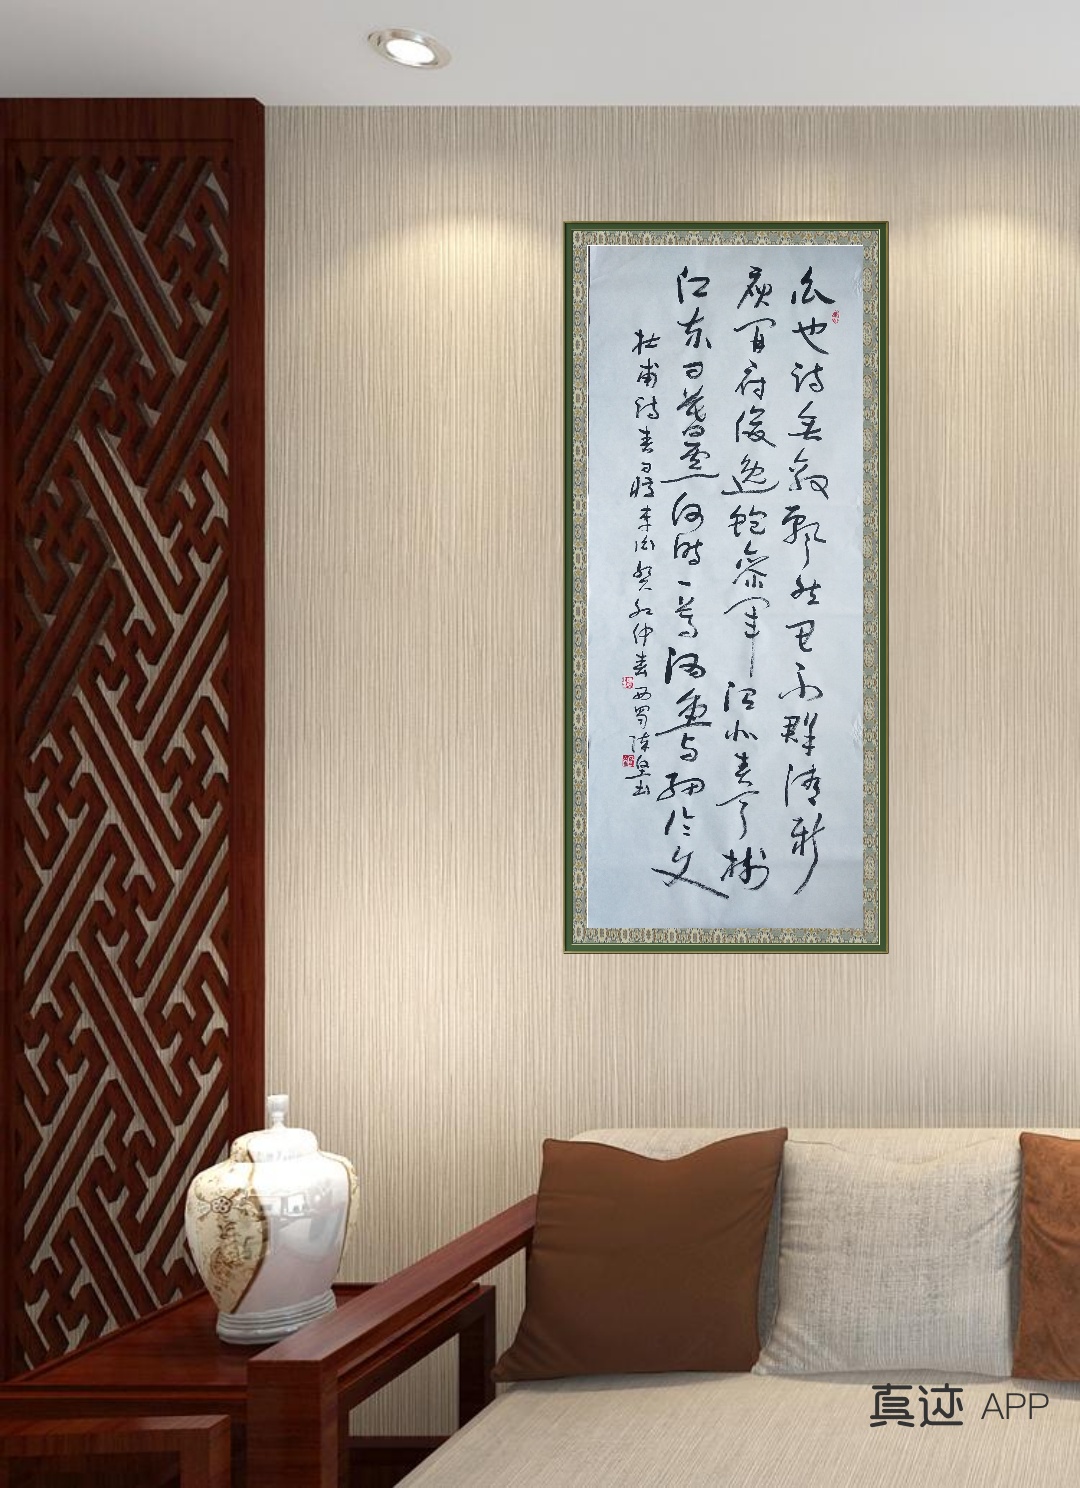 白也诗无敌飘然思不群清新
庾开府俊逸鲍参军渭北春天树
江东日暮云何时一尊酒重与细论文
杜甫诗春日忆李白癸卯仲春西蜀陈书
真迹 APP